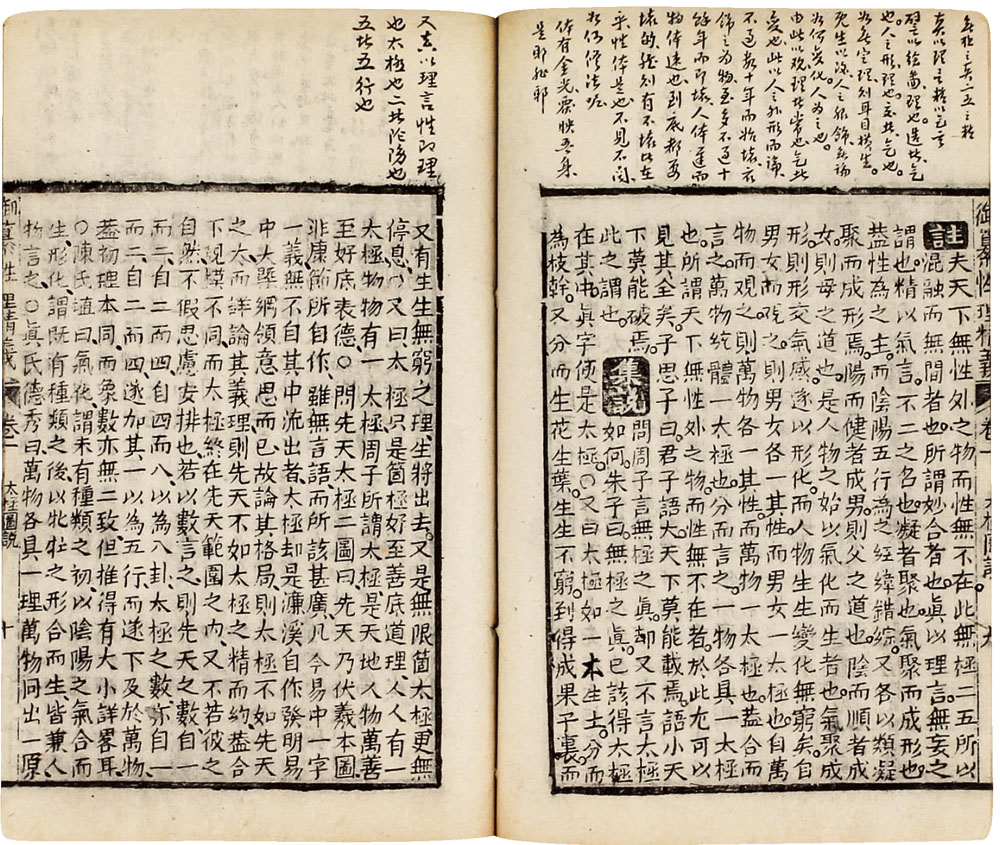 無極之真二五之精
真以理言精以氣言
也人之形理也
由此以觀理
不過數十年而始壞
餘年而即壞人体
物体遠也到底都要
壞的
乎性体是也不見不聞
体有金光雲映吾身
是耶
御纂性理精義 卷一 太極圖說 九
註 夫天下無性外之物而性無不在此無極二五所以
混融而無間者也所謂妙合者也眞以理言無妄之
謂也精以氣言不二之名也凝者聚也氣聚而成形也
蓋性為之主而陰陽五行為之經緯錯綜又各以類凝
聚而成形焉陽而健者成男則父之道也陰而順者成
女則母之道也是人物之始以氣化而生者也氣聚成
形則形交氣感遂以形化而人物生生變化無窮矣自
男女而觀之則男女各一其性而男女一太極也自萬
物而觀之則萬物各一其性而萬物一太極也蓋合而
言之萬物統體一太極也分而言之一物各具一太極
也所謂天下無性外之物而性無不在者於此尢可以
見其全矣子思子曰君子語大天下莫能載焉語小天
下莫能破焉
此之謂也
集說 問周子言無極之眞却又不言太極
如何朱子曰無極之眞已該得太極
在其中眞字便是太極○又曰太極如一本生去分而
為枝幹又分而生花生葉生生不窮到得成果子裏而
又以理言性即理
也太極也二此陰陽也
五此五行也
又有生生無窮之理生將出去又是無限箇太極更無
停息○又曰太極只是箇極好至善底道理人人有一
太極物物有一太極周子所謂太極是天地人物萬善
至好底表德○問先天太極二圖曰先天乃伏羲本圖
非康節所自作雖無言語而所該甚廣凡今易中一字
一義無不自其中流出者太極却是濂溪自作發明易
中大槩綱領意思而已故論其格局則太極不如先天
之大而詳論其義理則先天不如太極之精而約蓋合
下規模不同而太極終在先天範圍之內又不若彼之
自然不假思慮安排也若以數言之則先天之數自一
而二自二而四自四而八以為八卦太極之數亦自一
而二自二而四遂加其一以為五行而遂下及於萬物
蓋初理本同而象數亦無二致但推得有大小詳畧耳
○陳氏曰氣化謂未有種類之初以陰陽之氣合而
生形化謂既有種類之後以牝牡之形合而生皆兼人
物言之○眞氏德秀曰萬物各具一理萬物同出一原
御纂性理精義 卷一 太極圖說 十